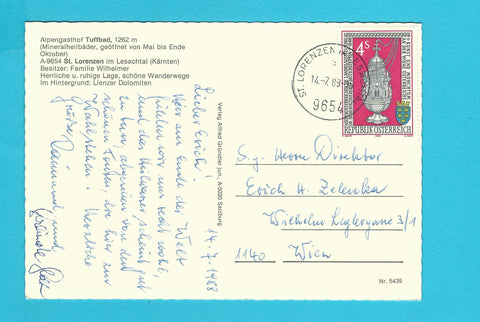 Alpengasthof Tuffbad, 1262 m
(Mineralheilbäder, geöffnet von Mai bis Ende
Oktober)
A-9654 St. Lorenzen im Lesachtal (Kärnten)
Besitzer: Familie Wilhelmer
Herrliche u. ruhige Lage, schöne Wanderwege
Im Hintergrund: Lienzer Dolomiten
14.7.1988
Lieber Erich!
Hier am Ende der Welt
fühlen wir uns recht wohl,
und das Heilwasser scheint gut
zu tun, abgesehen von den
schönen Touren, die hier zur
Wahl stehen! Herzliche
Grüße
Raimund und
Verlag Alfred Gründler jun., A-5020 Salzburg
ST. LORENZEN IM LESACHTAL
14.-7.88
9654
4S
REPUBLIK ÖSTERREICH
S.g. Herrn Direktor
Erich H. Zelenka
Wilhelm Leglergasse 3/1
1140 Wien
Nr. 5439